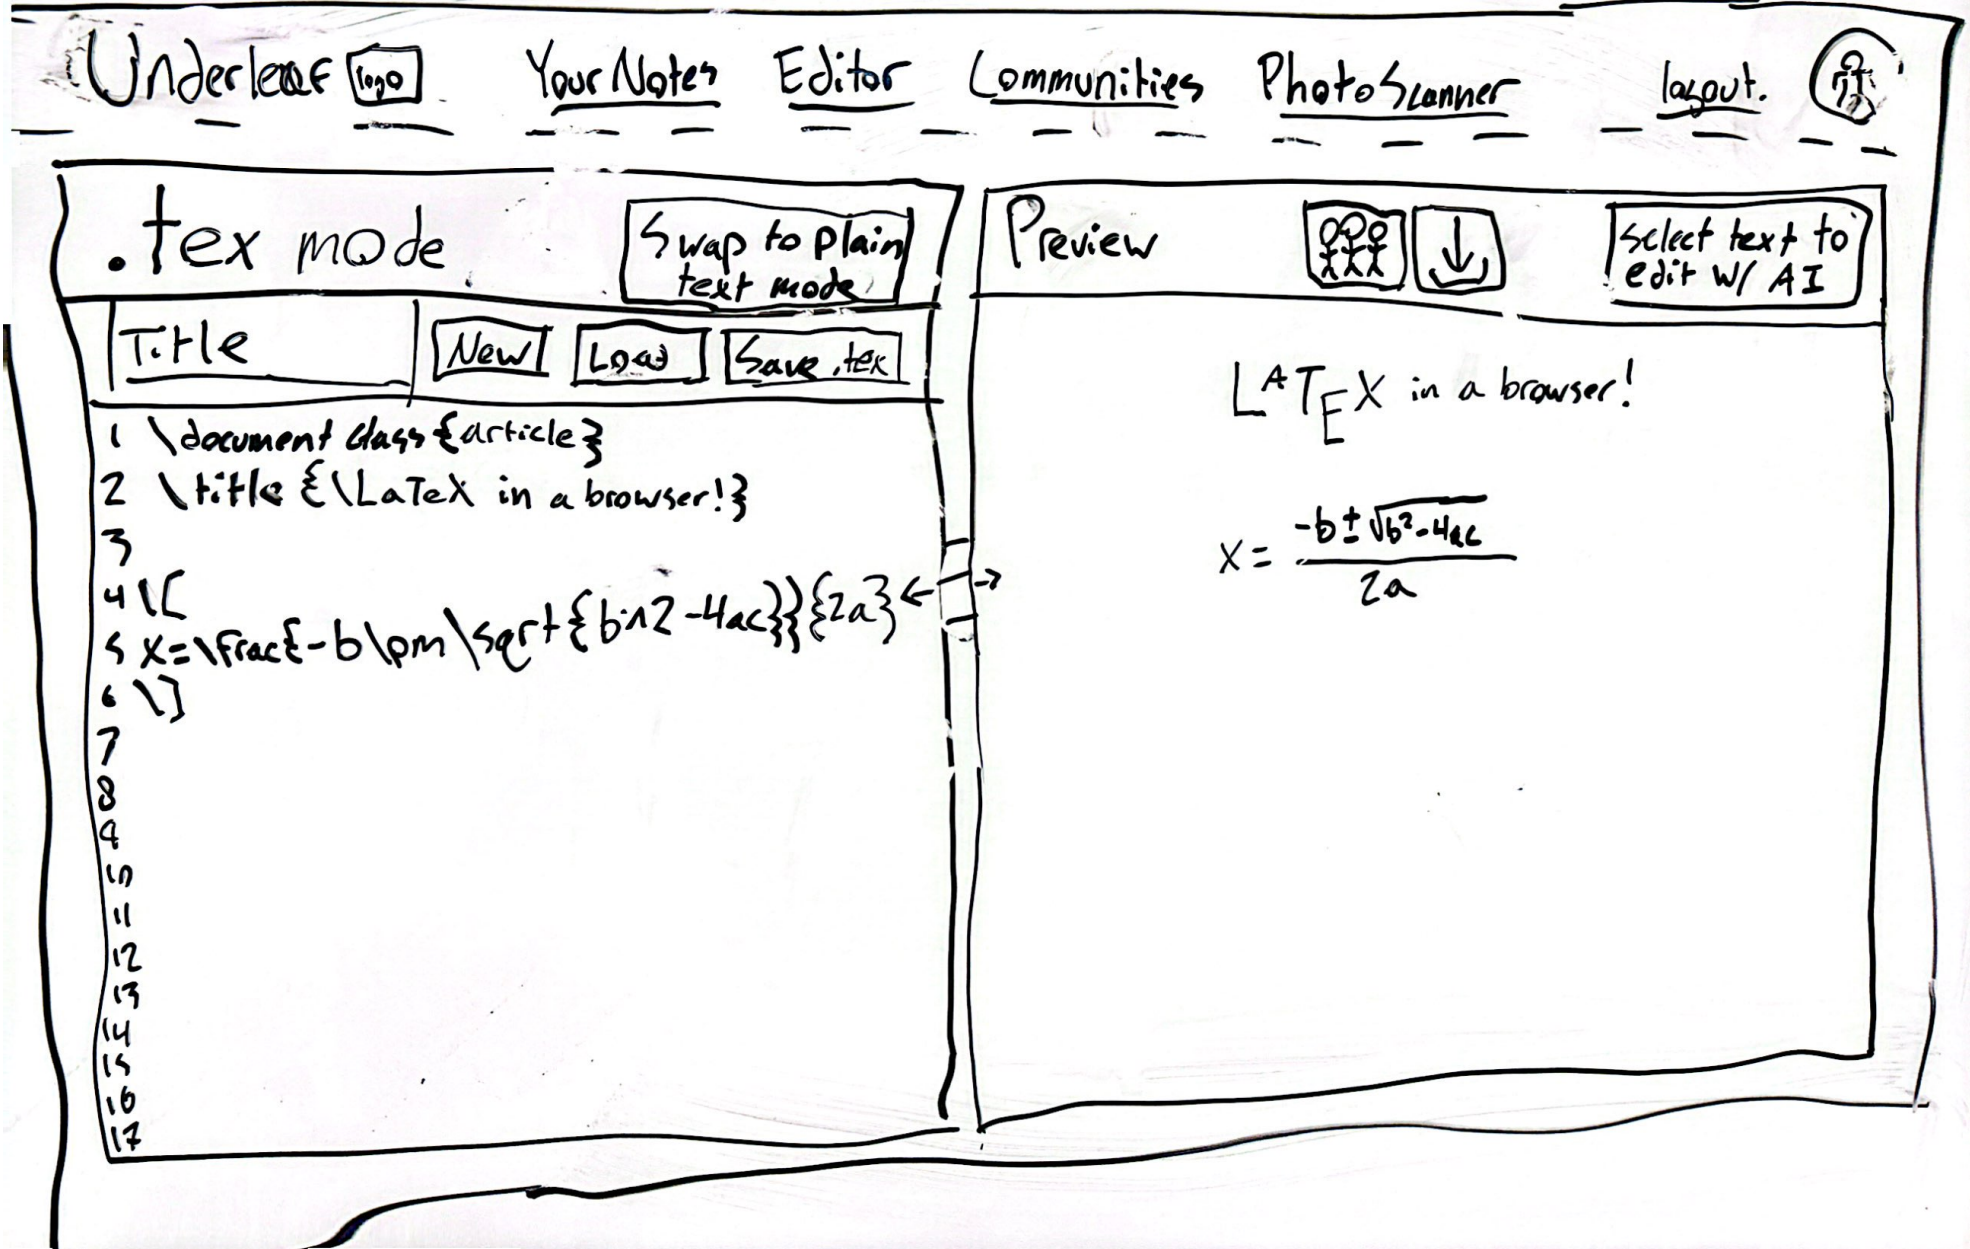 Underleaf logo Your Notes Editor Communities PhotoScanner logout.
.tex mode
Swap to plain
text mode
Title New Load Save .tex
1 \document class {article}
2 \title {\LaTeX in a browser!}
3
4 \[
5 x=\frac{-b\pm\sqrt{b^2-4ac}}{2a}
6 \]
7
8
9
10
11
12
13
14
15
16
17
Preview
select text to
edit w/ AI
LATEX in a browser!
x = -b ± √b²-4ac
2a